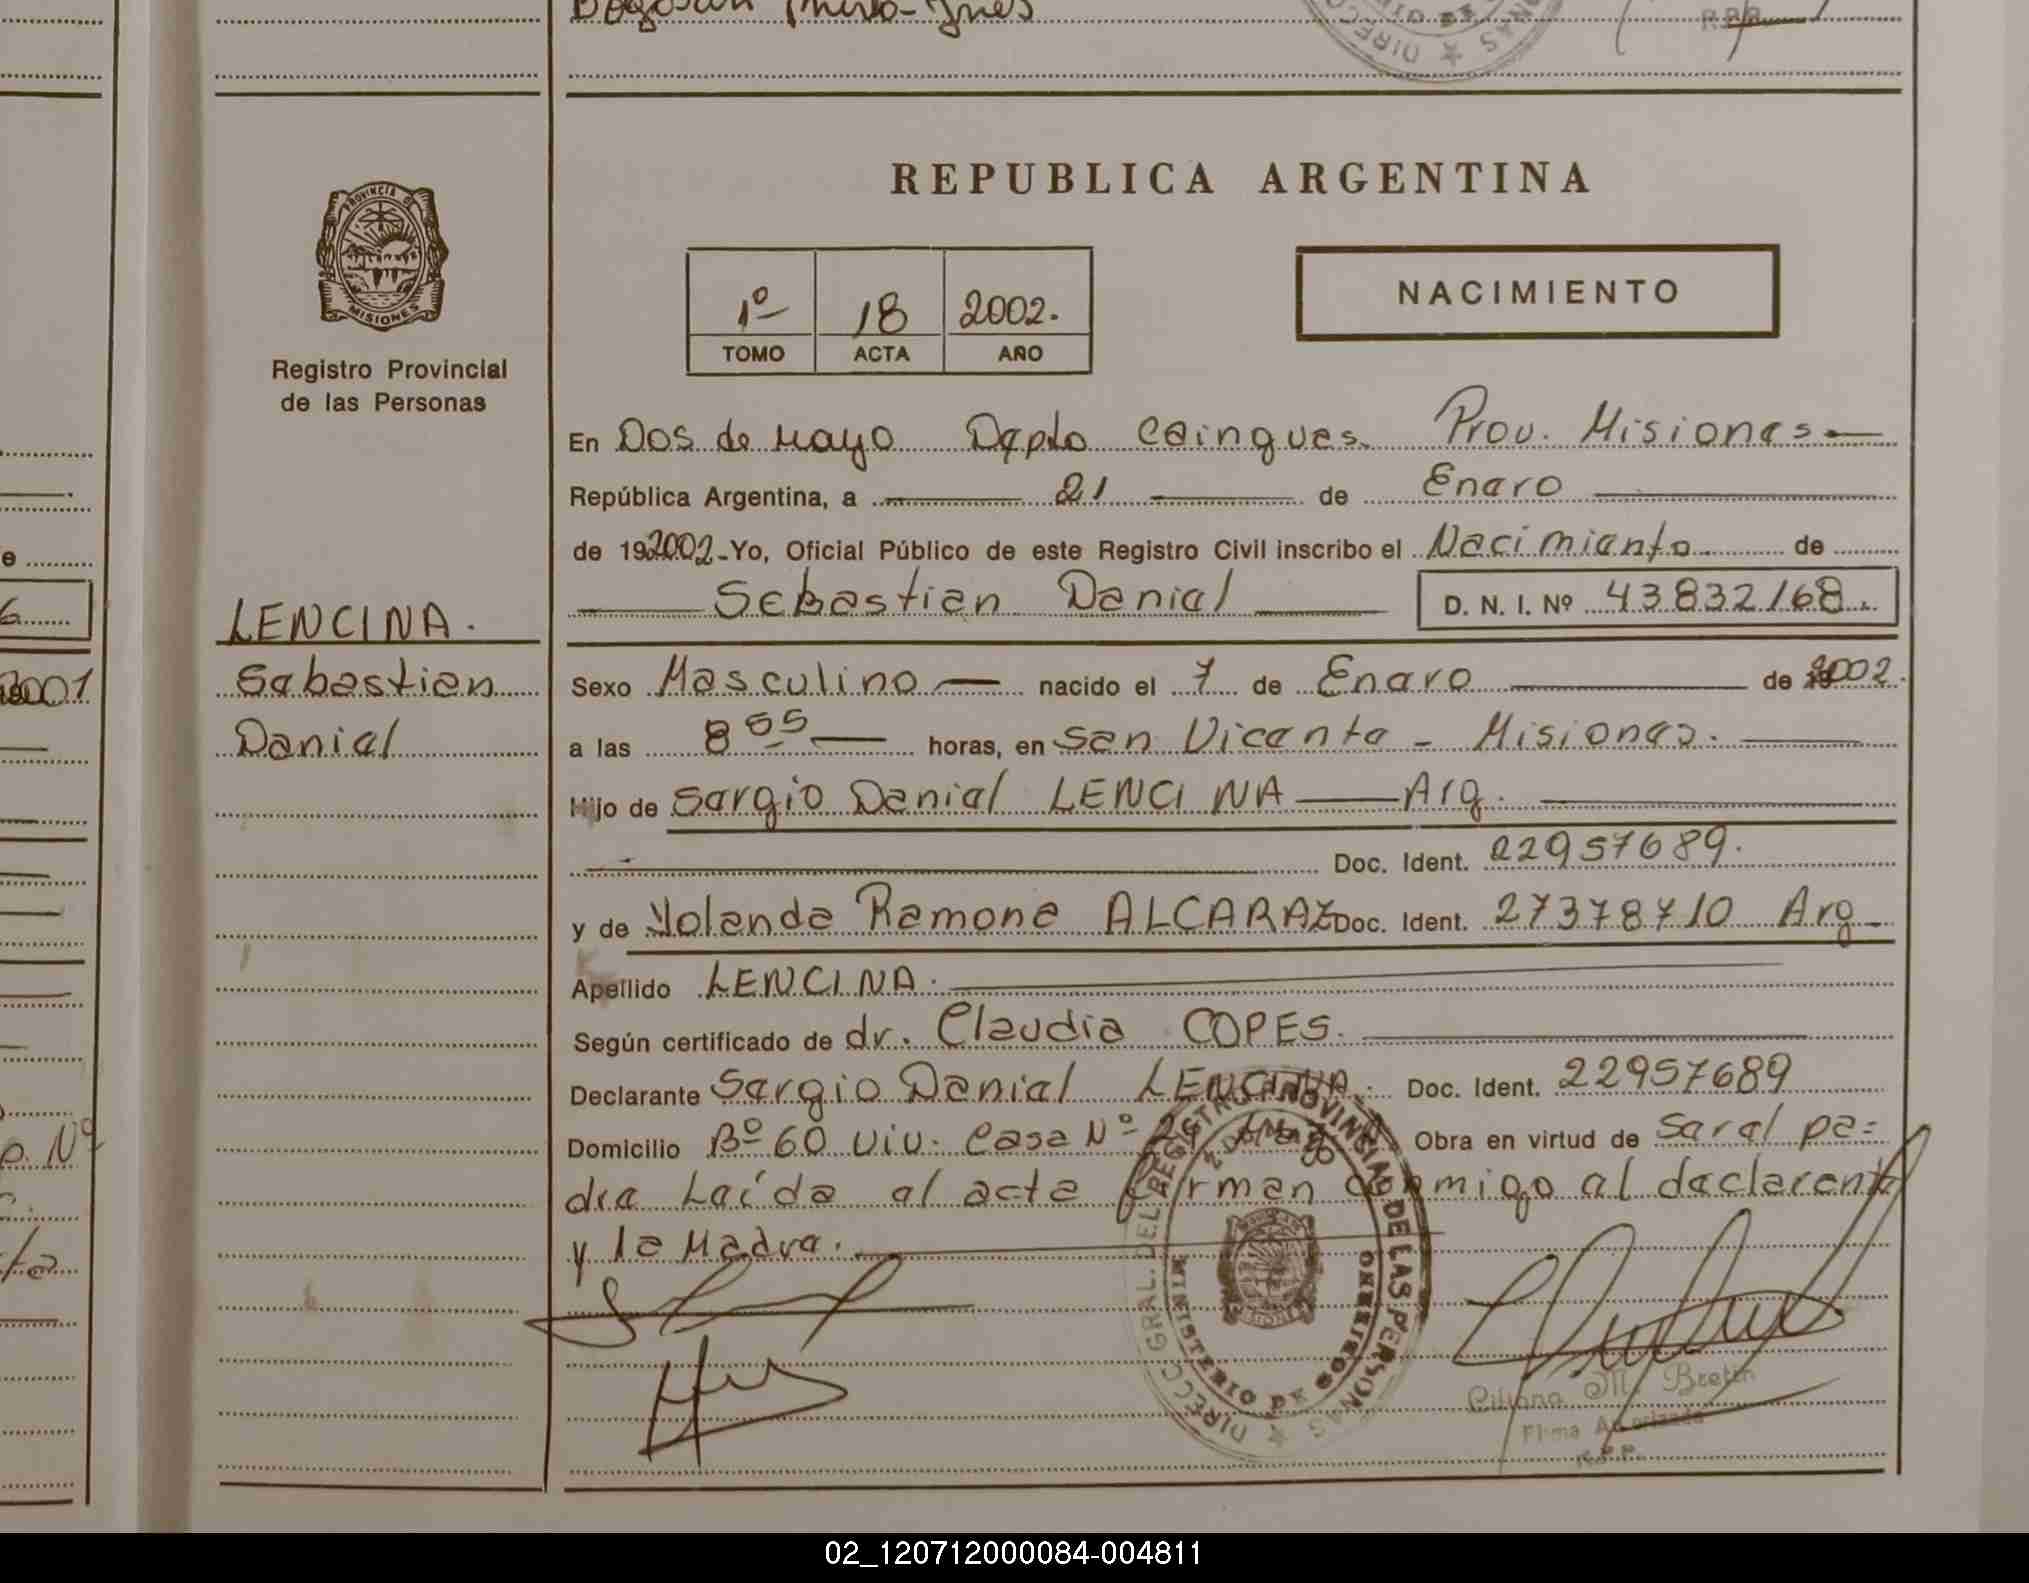 REPUBLICA ARGENTINA
PROVINCIA DE MISIONES
Registro Provincial
de las Personas
1º 18 2002.
TOMO ACTA AÑO
NACIMIENTO
En Dos de Mayo Depto Cainguas. Prov. Misiones.
República Argentina, a 21 de Enero
de 192002 - Yo, Oficial Público de este Registro Civil inscribo el Nacimiento de
Sebastian Daniel D. N. I. Nº 43832168.
LENCINA.
Sebastian
Daniel
Sexo Masculino nacido el 7 de Enero de 2002.
a las 8 55 horas, en San Vicente - Misiones.
Hijo de Sergio Daniel LENCINA Arg.
Doc. Ident. 22957689.
y de Yolanda Ramona ALCARAZ Doc. Ident. 27378710 Arg
Apellido LENCINA.
Según certificado de dr. Claudia COPES.
Declarante Sergio Daniel LENCINA. Doc. Ident. 22957689
Domicilio Bº 60 viv. Casa Nº Obra en virtud de Ser el pa=
dre Leída el acta firman conmigo el declarante
y la Madre.
DIRECC. GRAL. DEL REGISTRO PROVINCIAL DE LAS PERSONAS
MINISTERIO DE GOBIERNO
M. Bretin
Firma Autorizada
R.P.P.
2001
02_120712000084-004811